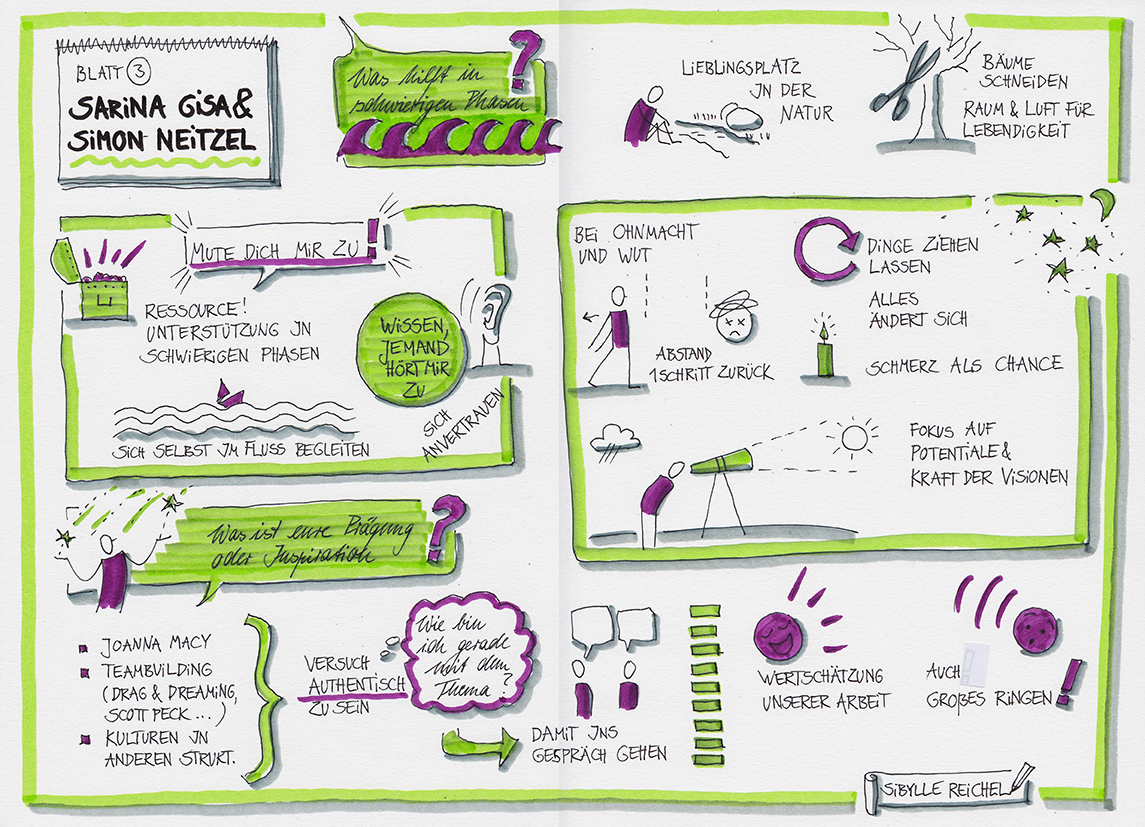 BLATT 3
SARINA GISA &
SIMON NEITZEL
Was hilft in
schwierigen Phasen
?
LIEBLINGSPLATZ
IN DER
NATUR
BÄUME
SCHNEIDEN
RAUM & LUFT FÜR
LEBENDIGKEIT
MUTE DICH MIR ZU !
RESSOURCE!
UNTERSTÜTZUNG IN
SCHWIERIGEN PHASEN
WISSEN,
JEMAND
HÖRT MIR
ZU
SICH
ANVERTRAUEN
SICH SELBST IM FLUSS BEGLEITEN
BEI OHNMACHT
UND WUT
ABSTAND
1 SCHRITT ZURÜCK
DINGE ZIEHEN
LASSEN
ALLES
ÄNDERT SICH
SCHMERZ ALS CHANCE
FOKUS AUF
POTENTIALE &
KRAFT DER VISIONEN
Was ist eure Prägung
oder Inspiration
?
JOANNA MACY
TEAMBUILDING
(DRAG & DREAMING,
SCOTT PECK ...)
KULTUREN IN
ANDEREN STRUKT.
VERSUCH
AUTHENTISCH
ZU SEIN
Wie bin
ich gerade
mit dem
Thema?
DAMIT INS
GESPRÄCH GEHEN
WERTSCHÄTZUNG
UNSERER ARBEIT
AUCH
GROßES RINGEN !
SIBYLLE REICHEL